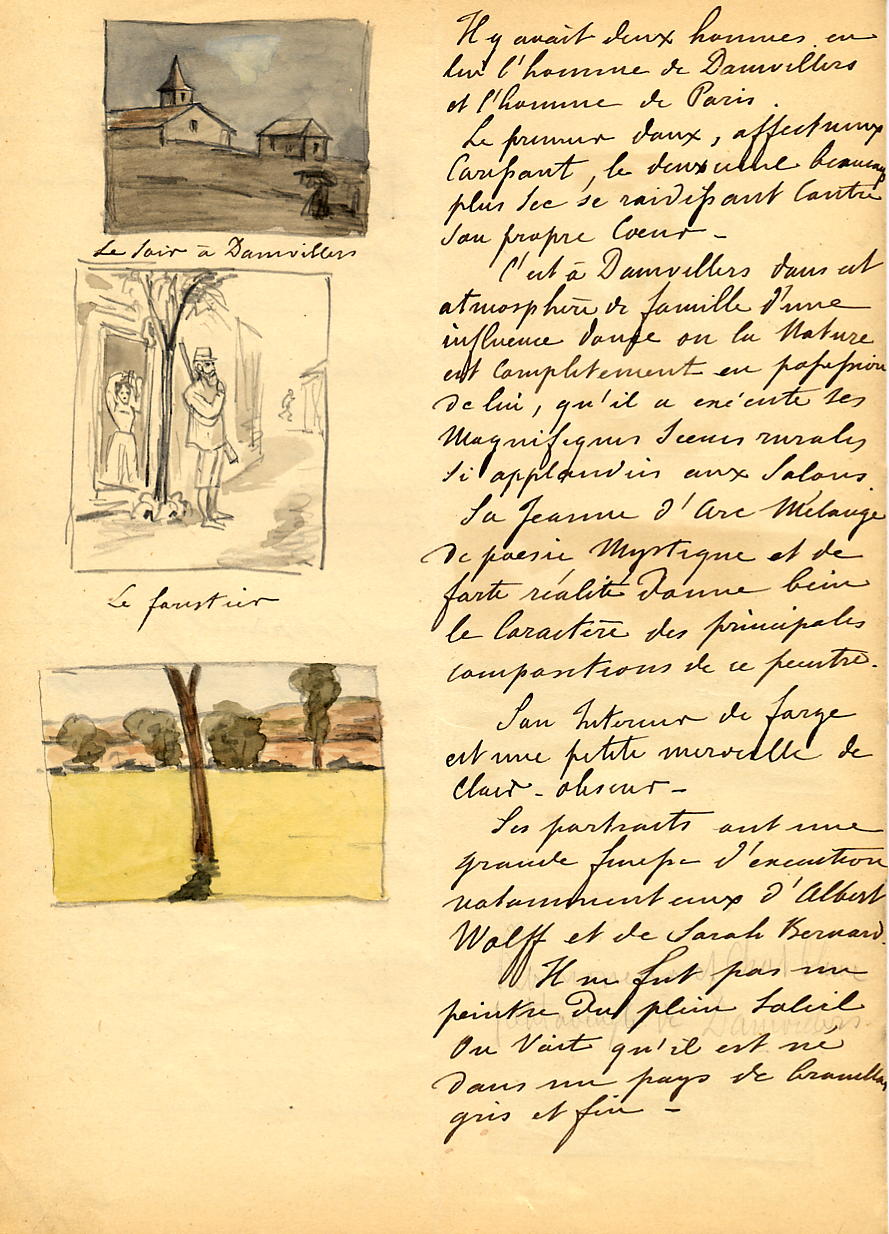 Il y avait deux hommes en
lui l'homme de Damvillers
et l'homme de Paris.
Le premier doux, affectueux
Caressant, le deuxième beaucoup
plus sec se raidissant Contre
son propre Coeur -
C'est à Damvillers dans cet
atmosphère de famille d'une
influence douce ou la Nature
est Complètement en possession
de lui, qu'il a exécuté ses
Magnifiques Scènes rurales
si applaudies aux Salons.
Sa Jeanne d'Arc Mélange
de poésie Mystique et de
forte réalité donne bien
le Caractère des principales
compositions de ce peintre.
Son Interieur de forge
est une petite merveille de
Clair-obscur -
Ses portraits ont une
grande finesse d'exécution
notamment ceux d'Albert
Wolff et de Sarah Bernard.
Il ne fut pas un
peintre du plein Soleil
On Voit qu'il est né
dans un pays de brouillas
gris et fin -
Le Soir à Damvillers
Le